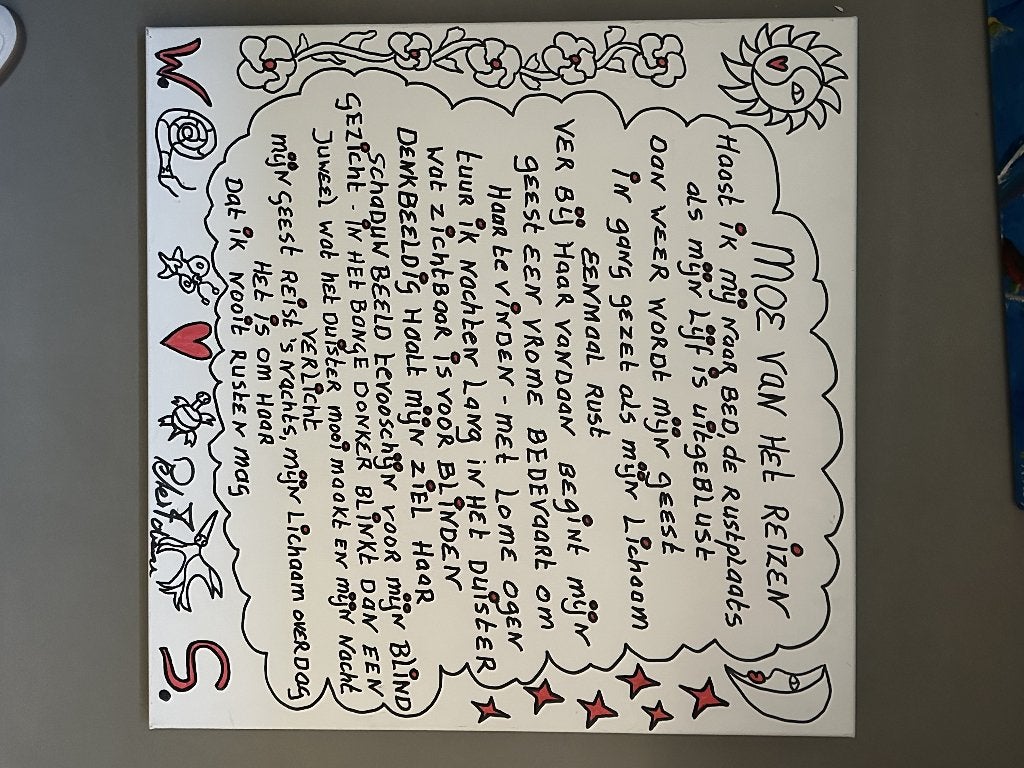 MOE VAN HET REIZEN
Haast ik mij naar bed, de rustplaats
als mijn lijf is uitgeblust
Dan weer wordt mijn geest
in gang gezet als mijn lichaam
eenmaal rust
Ver bij haar vandaan begint mijn
geest een vrome bedevaart om
Haar te vinden - met lome ogen
tuur ik nachten lang in het duister
wat zichtbaar is voor blinden
Denkbeeldig haalt mijn ziel haar
schaduwbeeld tevoorschijn voor mijn blind
gezicht - in het bange donker blinkt dan een
juweel wat het duister mooi maakt en mijn nacht
verlicht
mijn geest reist 's nachts, mijn lichaam overdag
Het is om haar
Dat ik nooit rusten mag
W. S.